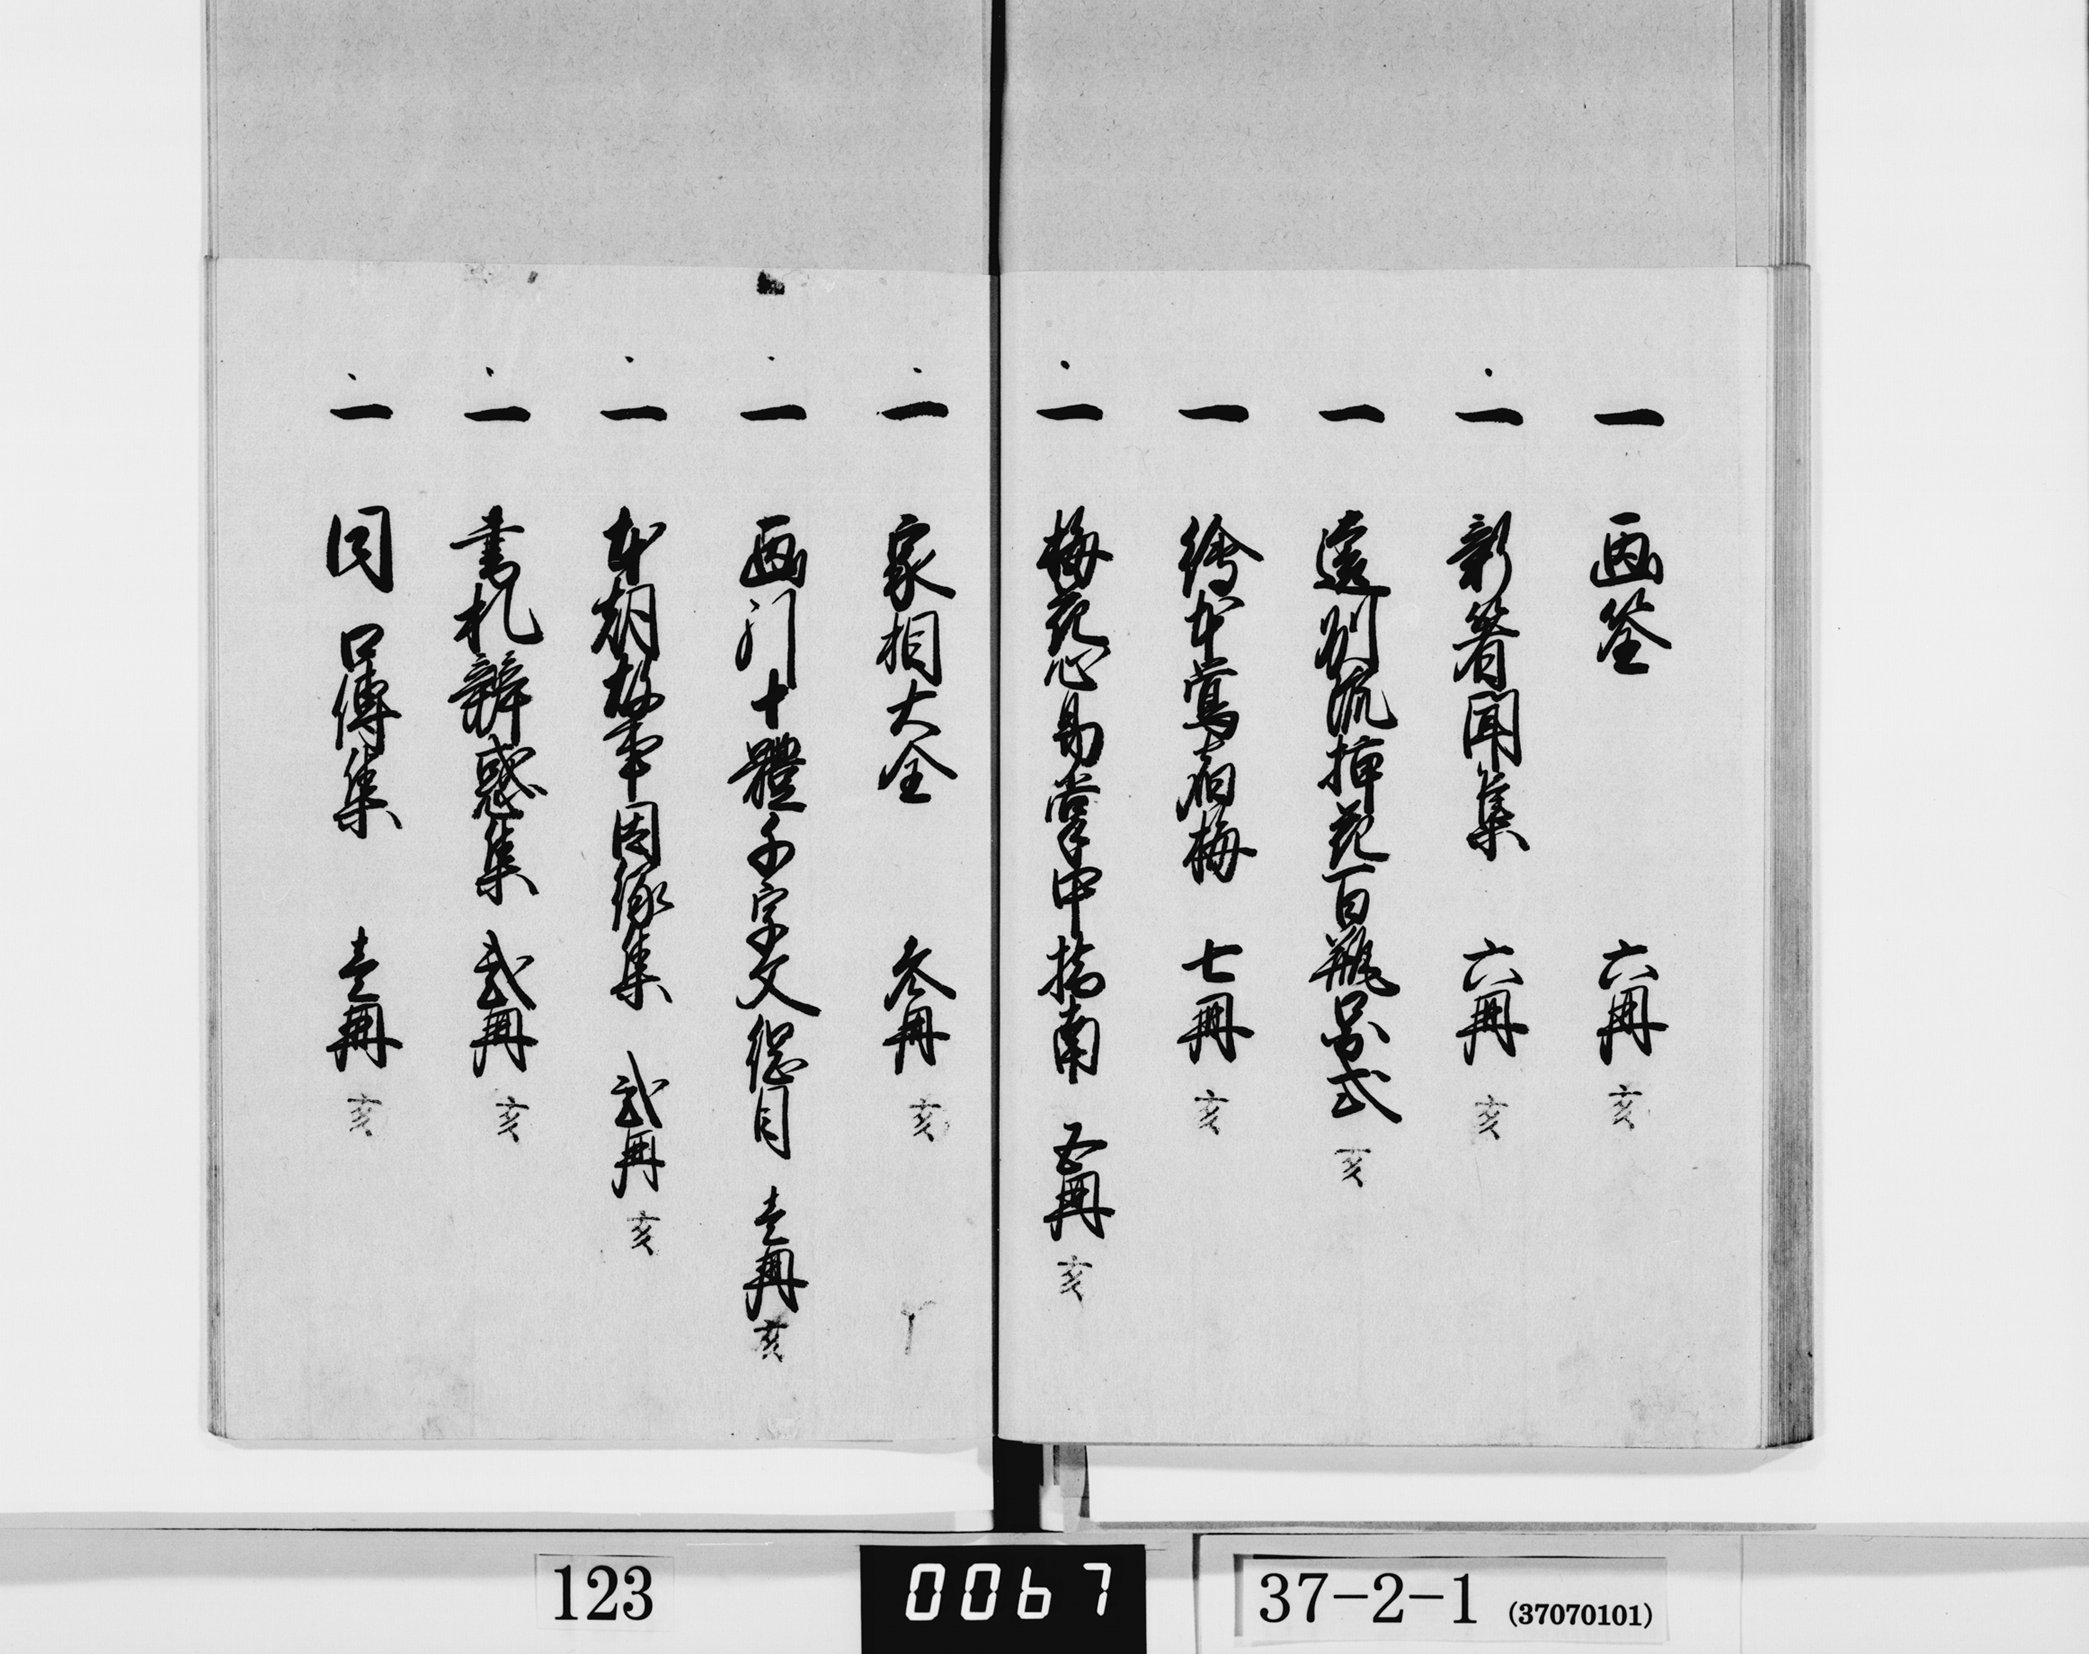 一 画筌 六冊 亥
一 新著聞集 六冊 亥
一 遠州流挿花百瓶図式 亥
一 絵本鶯宿梅 七冊 亥
一 梅花心易掌中指南 五冊 亥
一 家相大全 参冊 亥
一 画引十體千字文綱目 壱冊 亥
一 本朝故事因縁集 弐冊 亥
一 書札辨惑集 弐冊 亥
一 同 口傳集 壱冊 亥
123
0067
37-2-1 (37070101)